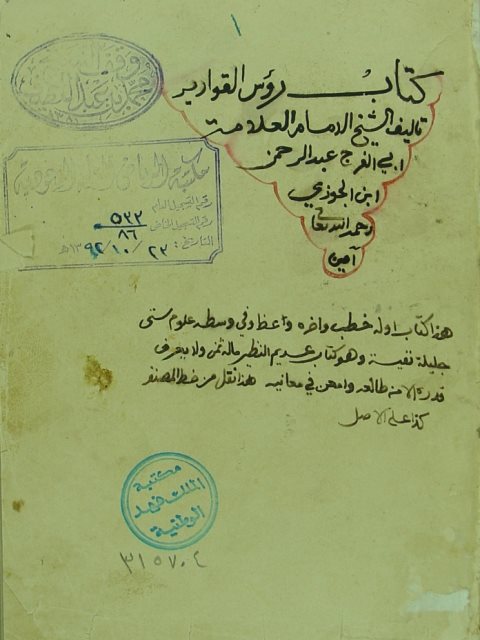 ١
كتاب رؤس القوارير
تاليف الشيخ الامام العلامة
ابي الفرج عبد الرحمن
ابن الجوزي
رحمه الله تعالى
آمين
وقف
محمد بن عبد اللطيف
١٣٨١
مكتبة الرياض السعودية
رقم التسجيل العام ٥٣٢
رقم التسجيل الخاص ٨٦
التاريخ: ٢٣ / ١٠ / ١٣٩٢هـ
هذا كتاب اوله خطب واخره واعظ وفي وسطه علوم ستى
جليلة نفيسة وهو كتاب عديم النظير ماله ثمن ولا يعرف
قدره الا من طالعه وامعن في معانيه هذا نقل من خط المصنف
كذا على الاصل
مكتبة
الملك فهد
الوطنية
٣١٥٧٠٤